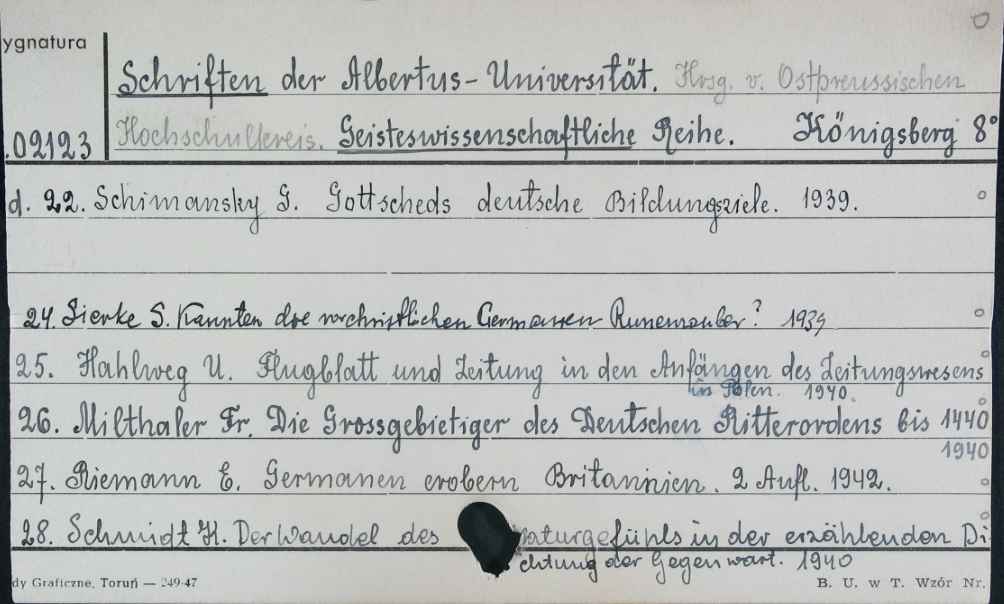 ygnatura
Schriften der Albertus-Universität. Hrsg. v. Ostpreussischen
.02123 Hochschulkreis. Geisteswissenschaftliche Reihe. Königsberg 8°
d. 22. Schimansky G. Gottscheds deutsche Bildungsziele. 1939.
24. Sierke S. Kannten die vorchristlichen Germanen Runenzauber? 1939
25. Hahlweg U. Flugblatt und Zeitung in den Anfängen des Zeitungswesens
in Polen. 1940.
26. Milthaler Fr. Die Grossgebietiger des Deutschen Ritterordens bis 1440
1940
27. Riemann E. Germanen erobern Britannien. 2 Aufl. 1942.
28. Schmidt H. Der Wandel des naturgefühls in der erzählenden Di
chtung der Gegenwart. 1940
dy Graficzne, Toruń — 249-47 B. U. w T. Wzór Nr.